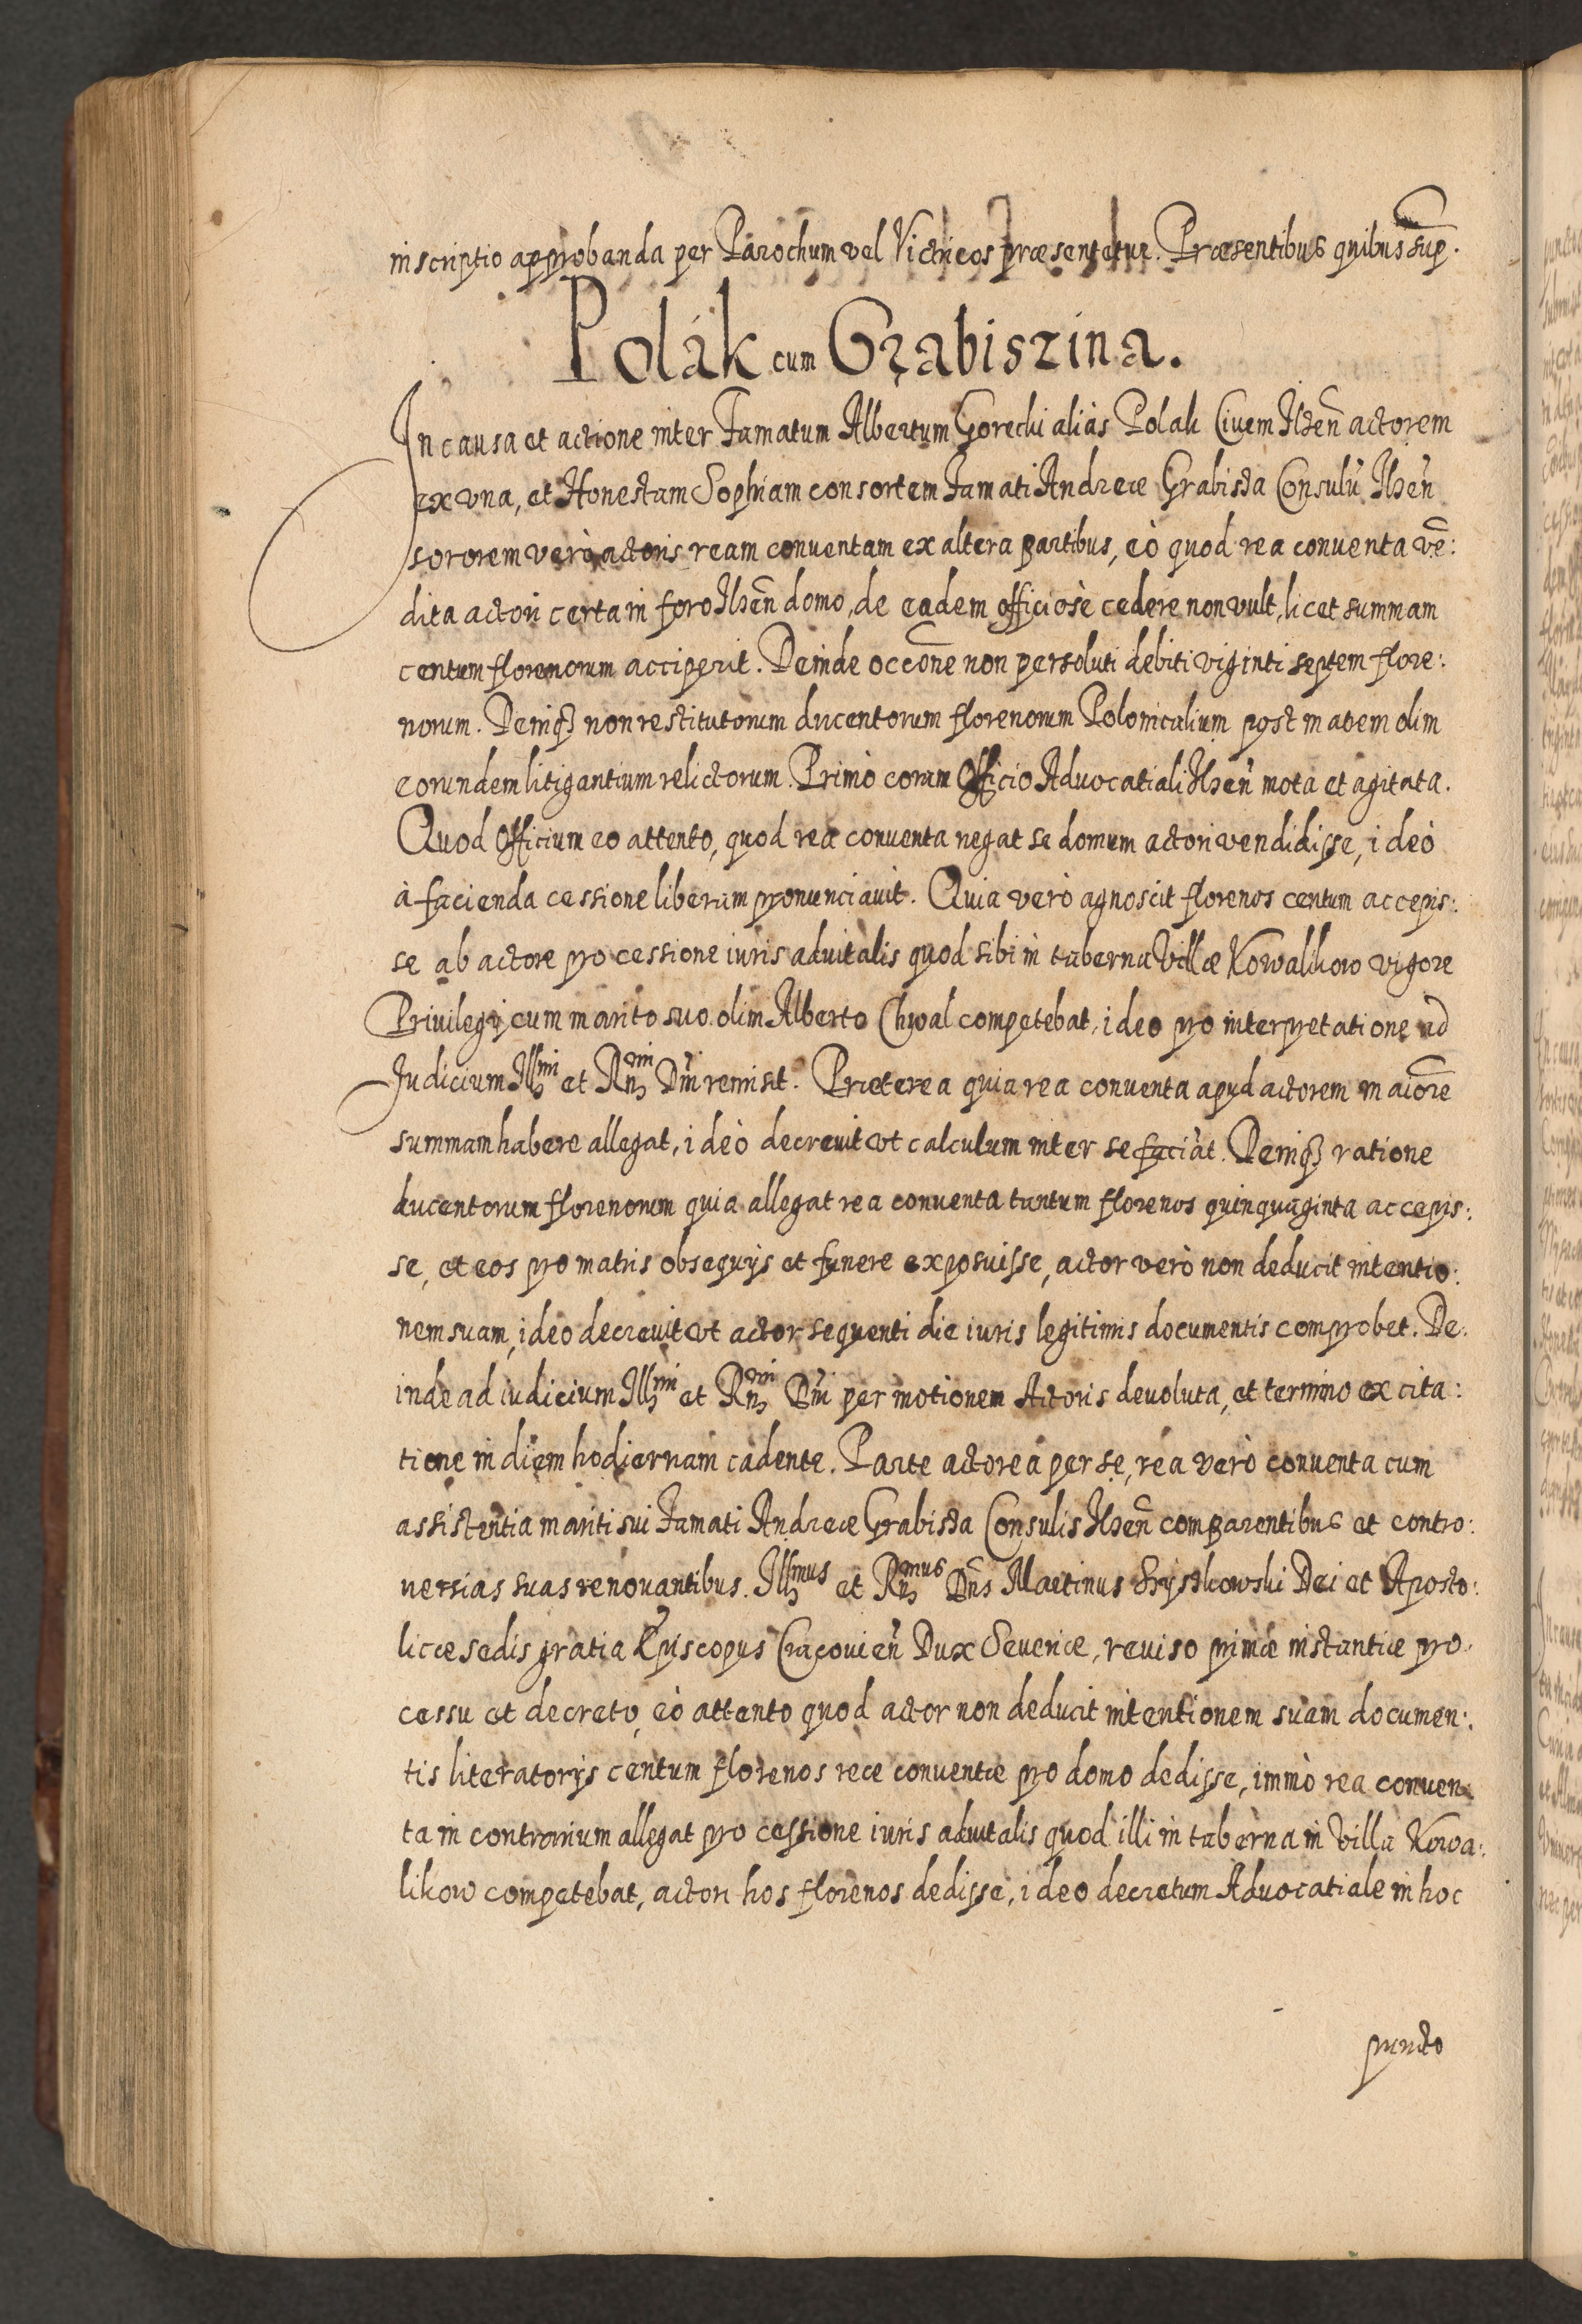 inscriptio approbanda per Parochum vel Victricos præsentetur. Præsentibus quibus sup̃.
Polák cum Grabiszina.
In causa et actione inter Famatum Albertum Gorecki aliàs Polak Ciuem Ilzeñ actorem
ex vna, et Honestam Sophiam consortem Famati Andreæ Grabista Consulũ Ilzeñ
sororem verò actoris ream conuentam ex altera partibus, eò quod rea conuenta vẽ:
dita actori certa in foro Ilzeñ domo, de eadem officiosè cedere non vult, licet summam
centum florenorum acciperit. Deinde occõne non persoluti debiti viginti septem flore:
norum. Deniqȝ non restitutorum ducentorum florenorum Polonicalium post matrem olim
eorundem litigantium relictorum. Primò coram Officio Aduocatiali Ilzeñ mota et agitata.
Quod Officium eo attento, quod rea conuenta negat se domum actori vendidisse, ideò
à facienda cessione liberam pronunciauit. Quia verò agnoscit florenos centum accepis:
se ab actore pro cessione iuris aduitalis quod sibi in taberna Villæ Kowalkow vigore
Priuilegij cum marito suo olim Alberto Chwal competebat, ideo pro interpretatione ad
Judicium Illmi et Rñmi Dñi remisit. Præterea quia rea conuenta apud actorem maiorẽ
summam habere allegat, ideò decreuit vt calculum inter se faciãt. Deniqȝ ratione
ducentorum florenorum quia allegat rea conuenta tantum florenos quinquaginta accepis:
se, et eos pro matris obsequijs et funere exposuisse, actor verò non deducit intentio:
nem suam, ideo decreuit vt actor sequenti die iuris legitimis documentis comprobet. De:
inde ad iudicium Illmi et Rñmi Dñi per motionem Actoris deuoluta, et termino ex cita:
tione in diem hodiernam cadente. Parte actorea per se, rea verò conuenta cum
assistentia mariti sui Famati Andreæ Grabista Consulis Ilzeñ comparentibus et contro:
uersias suas renouantibus. Illmus et Rñmus Dñs Martinus Szyszkowski Dei et Aposto:
licæ sedis gratia Episcopus Cracouieñ Dux Seueriæ, reuiso primæ instantiæ pro:
cessu et decreto, eò attento quod actor non deducit intentionem suam documen:
tis literatorijs centum florenos reæ conuentæ pro domo dedisse, immò rea conuen
ta in contrarium allegat pro cessione iuris aduitalis quod illi in taberna in Villa Kowa:
likow competebat, actori hos florenos dedisse, ideo decretum Aduocatiale in hoc
puncto